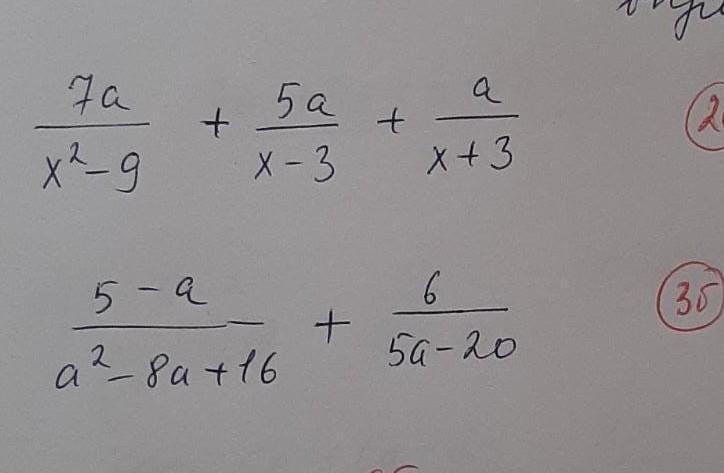 7a/(x² - 9) + 5a/(x - 3) + a/(x + 3)
(5 - a)/(a² - 8a + 16) + 6/(5a - 20)